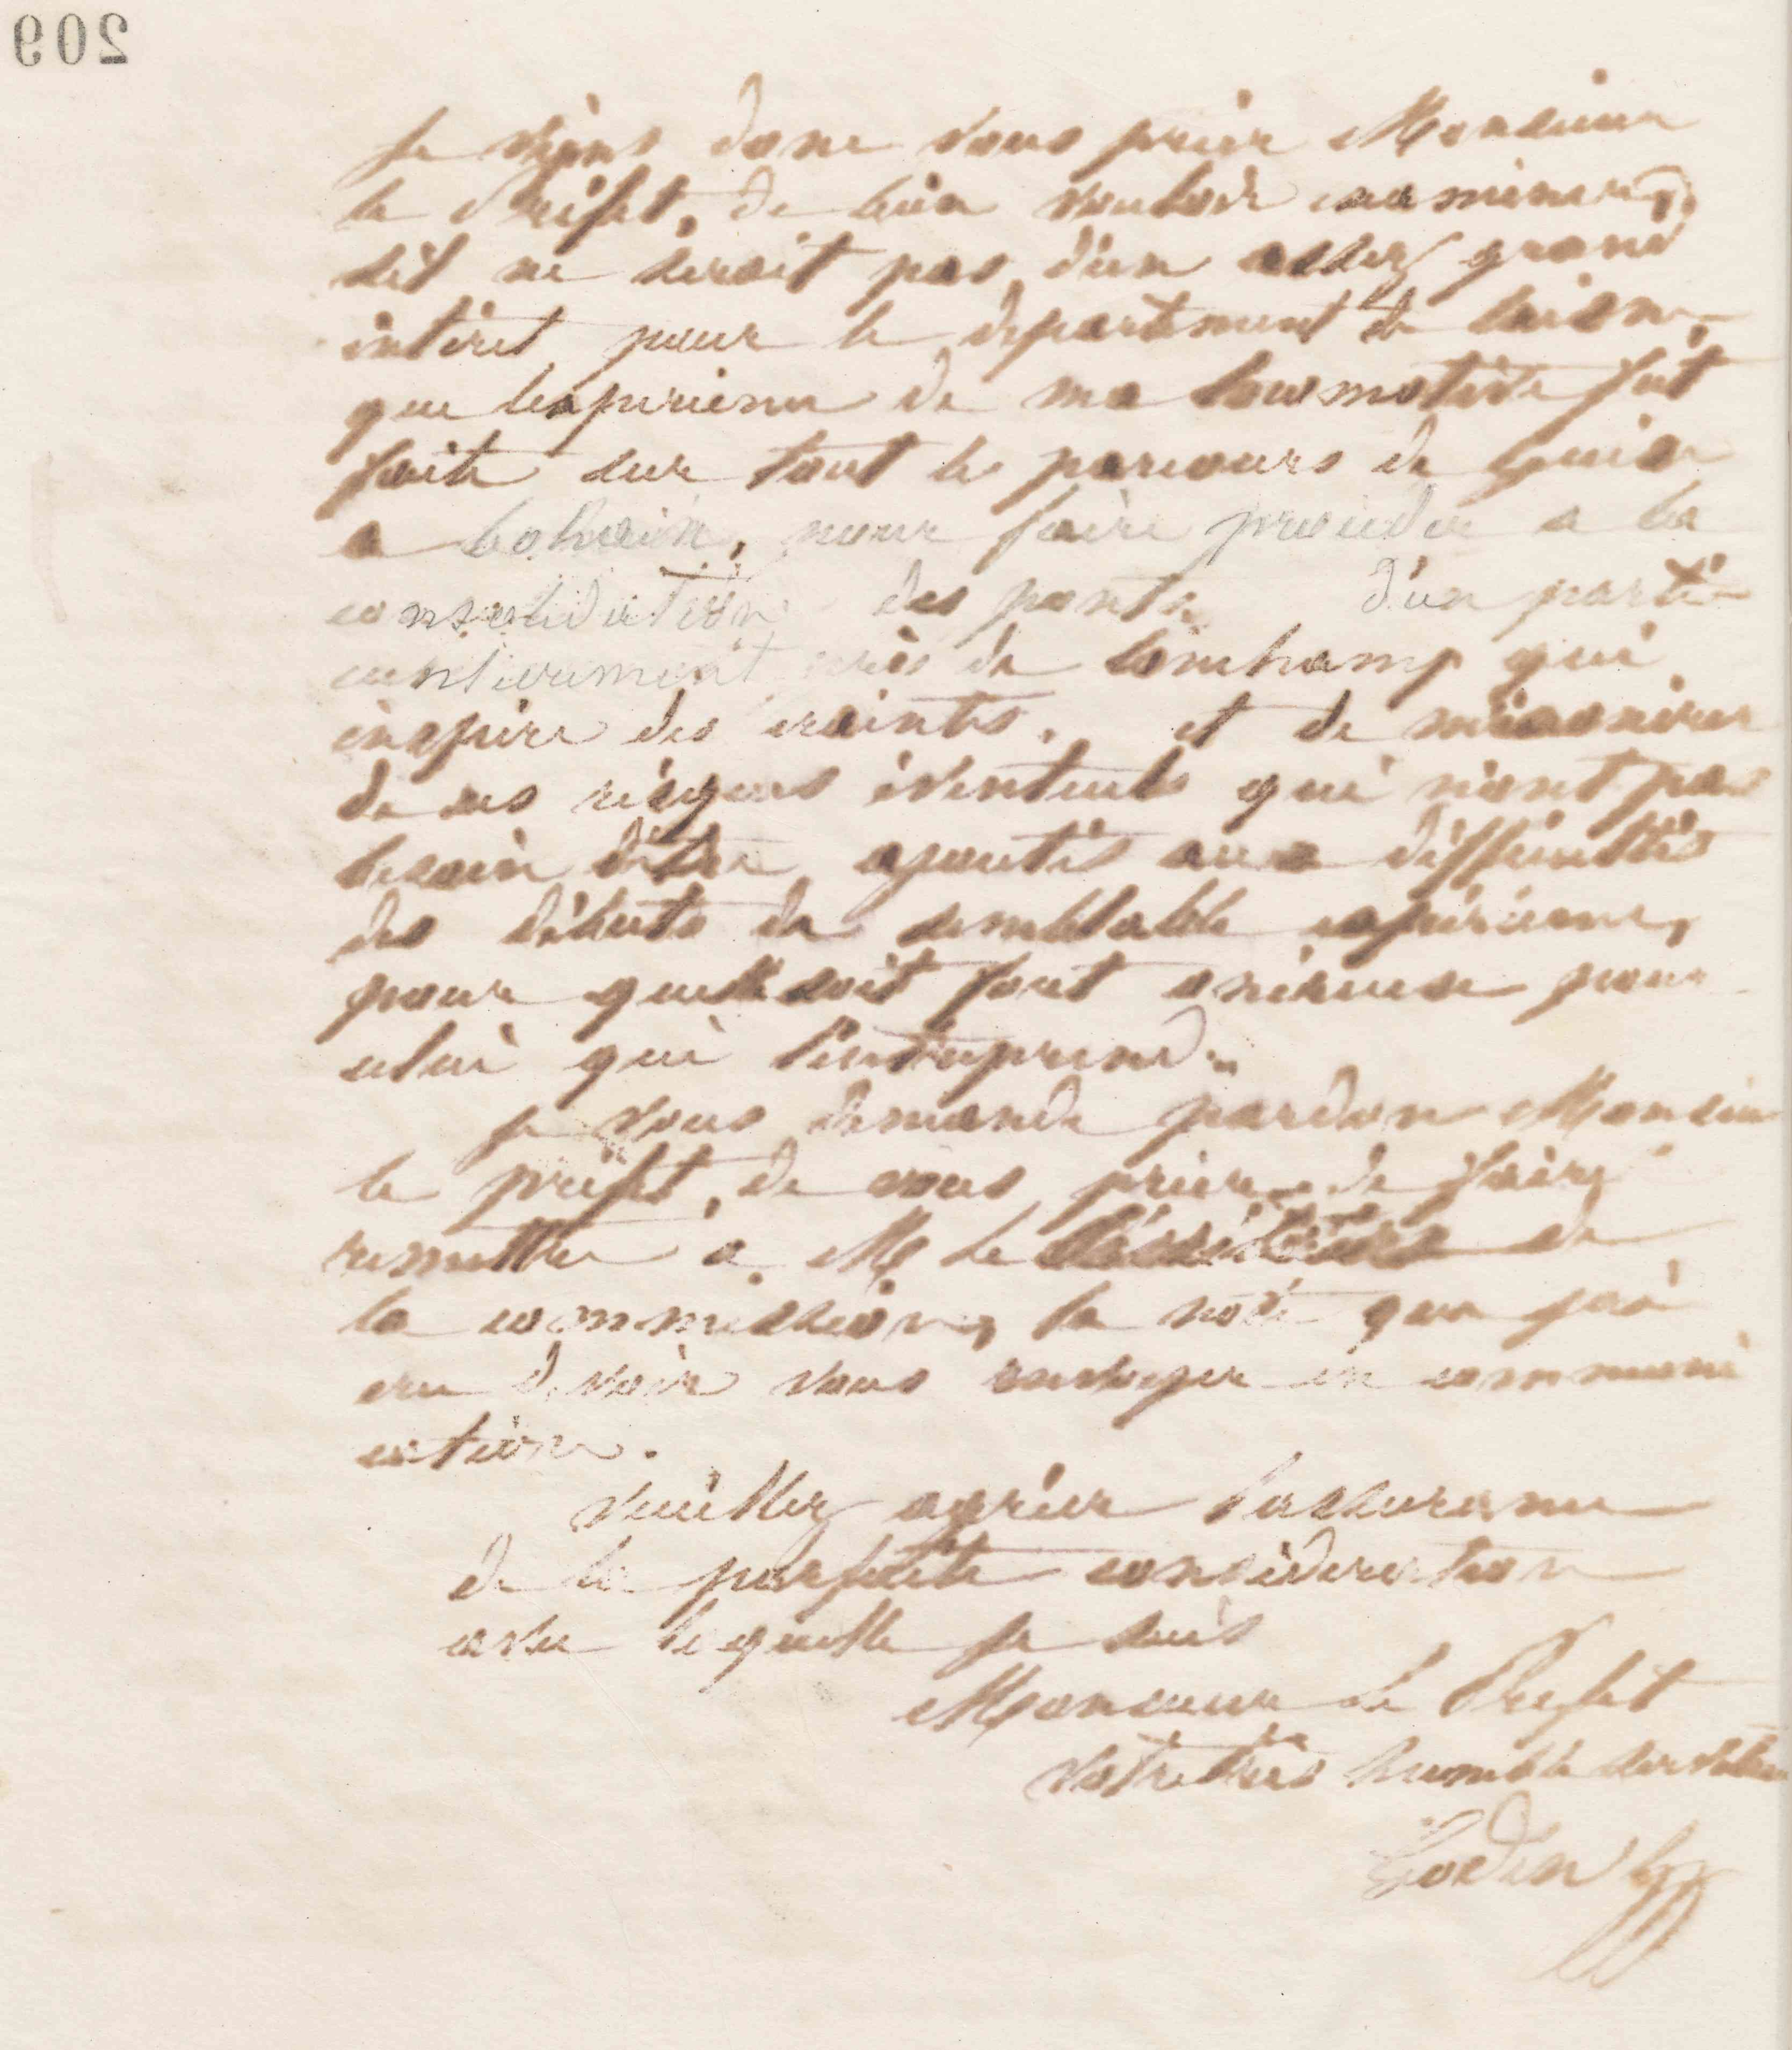 209
Je viens donc vous prier Monsieur
le Préfet, de bien vouloir examiner,
sil ne serait pas d'un assez grand
intéret pour le departement de laisne,
que lexperience de ma locomotive fut
faite sur tout le parcours de Guise
a bohain, pour faire proceder a la
consolidation des ponts d'un parti
culierement près de Lonchamp qui
inspire des craintes. et de mexonérer
de ces risques éventuels qui n'ont pas
besoin d'être ajoutés aux difficultés
des débuts de semblable expérience,
pour quelle soit fort onéreuse pour
celui qui l'entreprend.
Je vous demande pardon Monsieur
le préfet, de vous prier de faire
remettre à M le Secrétaire de
la commission, la note que jai
cru devoir vous envoyer en communi
cation.
Veuillez agréer lassurance
de la parfaite consideration
avec laquelle je suis
Monsieur le Préfet
Votre très humble serviteur
Godin